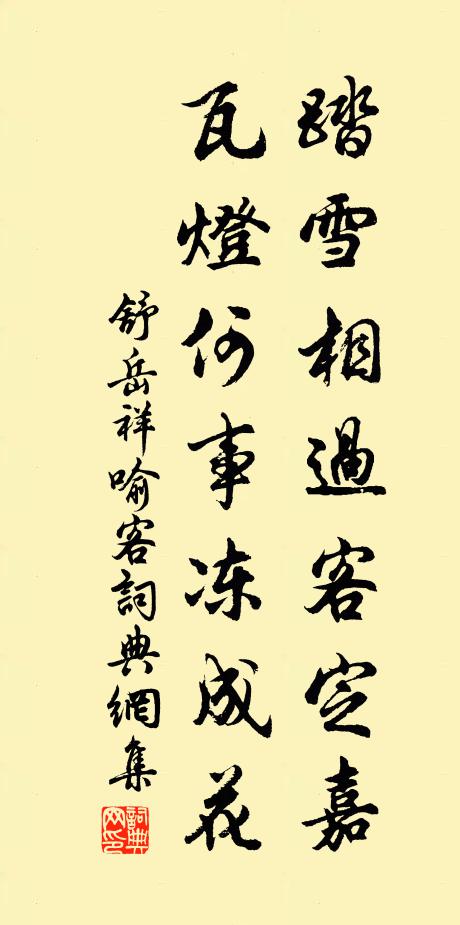 踏雪相過客定嘉
瓦燈何事冻成花
舒岳祥喻客詞典網集
詞典網印